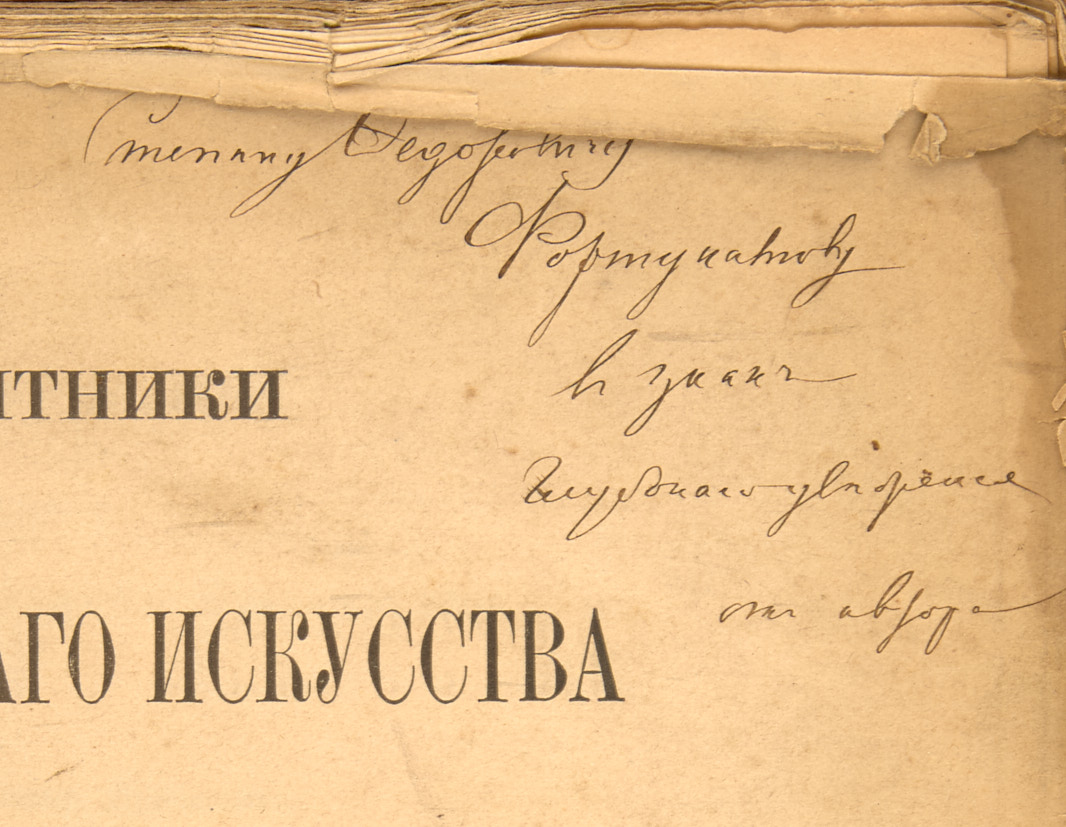 Степану Федоровичу
Фортунатову
въ знакъ
глубокаго уваженія
отъ автора
ТНИКИ
АГО ИСКУССТВА